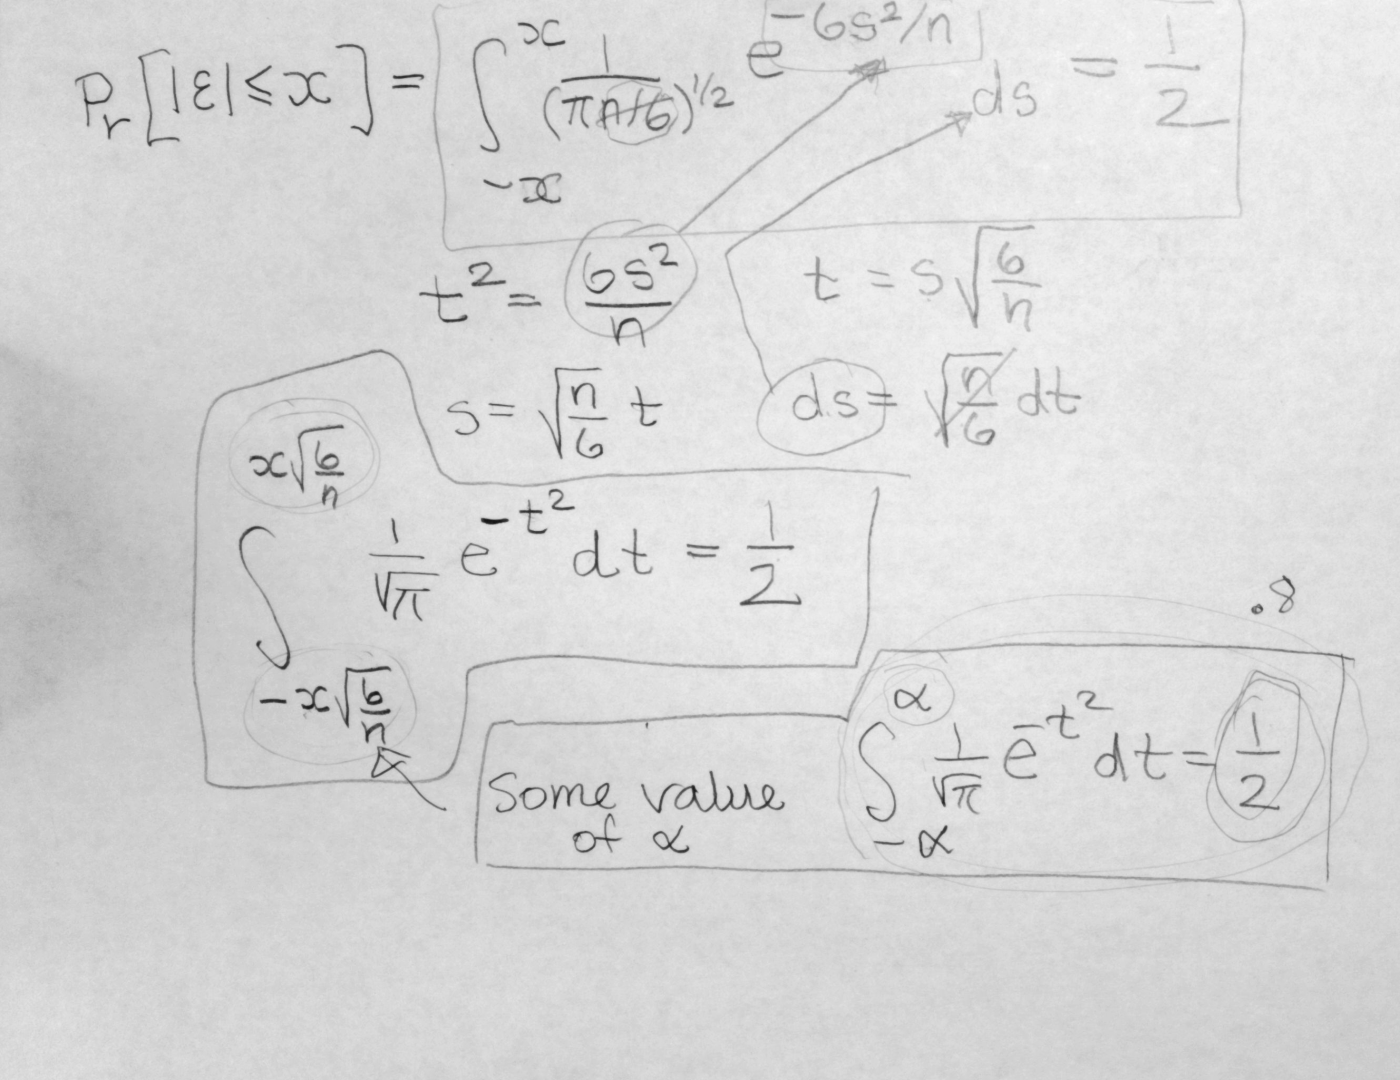 Pr[|ε| ≤ x] = ∫_{-x}^{x} 1/(πn/6)^{1/2} e^{-6s²/n} ds = 1/2
t² = 6s²/n    t = s√(6/n)
s = √(n/6) t    ds = √(n/6) dt
∫_{-x√(6/n)}^{x√(6/n)} 1/√π e^{-t²} dt = 1/2
.8
Some value of α    ∫_{-α}^{α} 1/√π e^{-t²} dt = 1/2